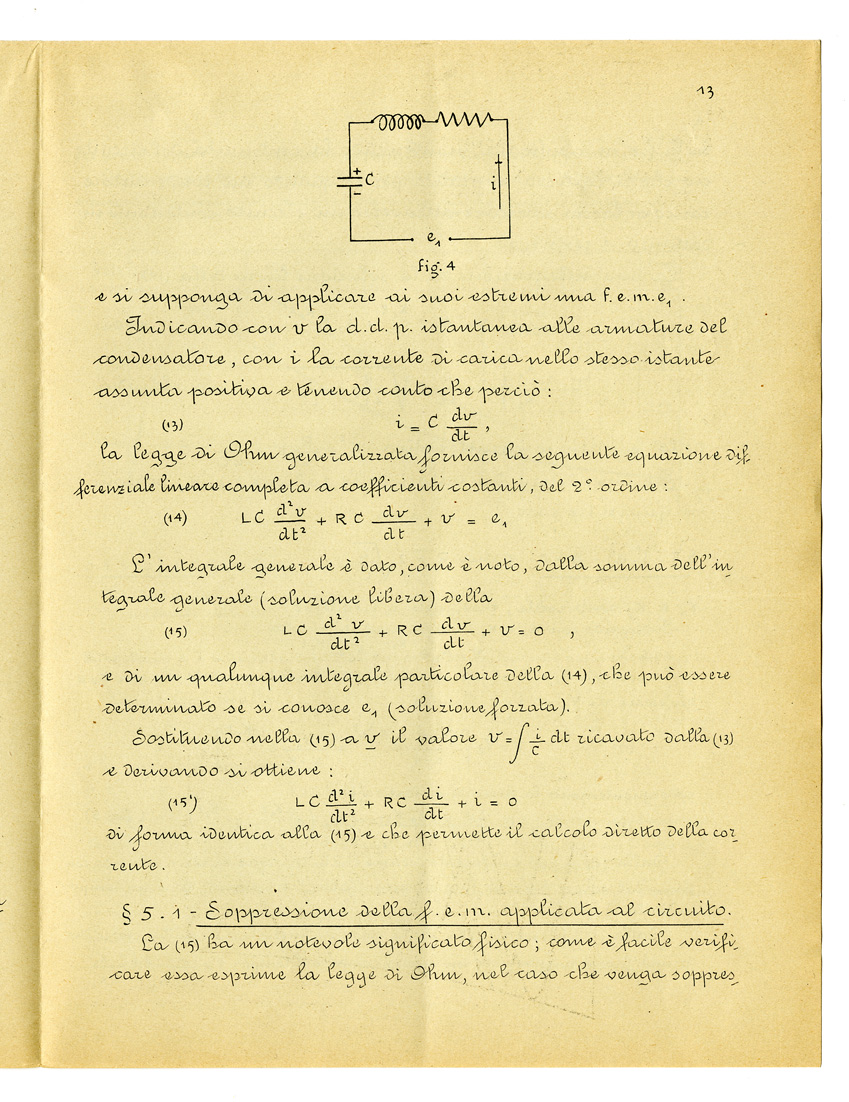 13
+
C
i
-
e₁
fig. 4
e si supponga di applicare ai suoi estremi una f. e. m. e₁ .
Indicando con v la d. d. p. istantanea alle armature del
condensatore, con i la corrente di carica nello stesso istante
assunta positiva e tenendo conto che perciò :
(13) i = C dv/dt ,
la legge di Ohm generalizzata fornisce la seguente equazione dif_
ferenziale lineare completa a coefficienti costanti, del 2° ordine :
(14) LC d²v/dt² + RC dv/dt + v = e₁
L' integrale generale è dato, come è noto, dalla somma dell'in_
tegrale generale (soluzione libera) della
(15) LC d²v/dt² + RC dv/dt + v = 0 ,
e di un qualunque integrale particolare della (14), che può essere
determinato se si conosce e₁ (soluzione forzata).
Sostituendo nella (15) a v il valore v = ∫ i/C dt ricavato dalla (13)
e derivando si ottiene :
(15') LC d²i/dt² + RC di/dt + i = 0
di forma identica alla (15) e che permette il calcolo diretto della cor_
rente .
§ 5 . 1 - Soppressione della f. e. m. applicata al circuito.
La (15) ha un notevole significato fisico ; come è facile verifi_
care essa esprime la legge di Ohm, nel caso che venga soppres_